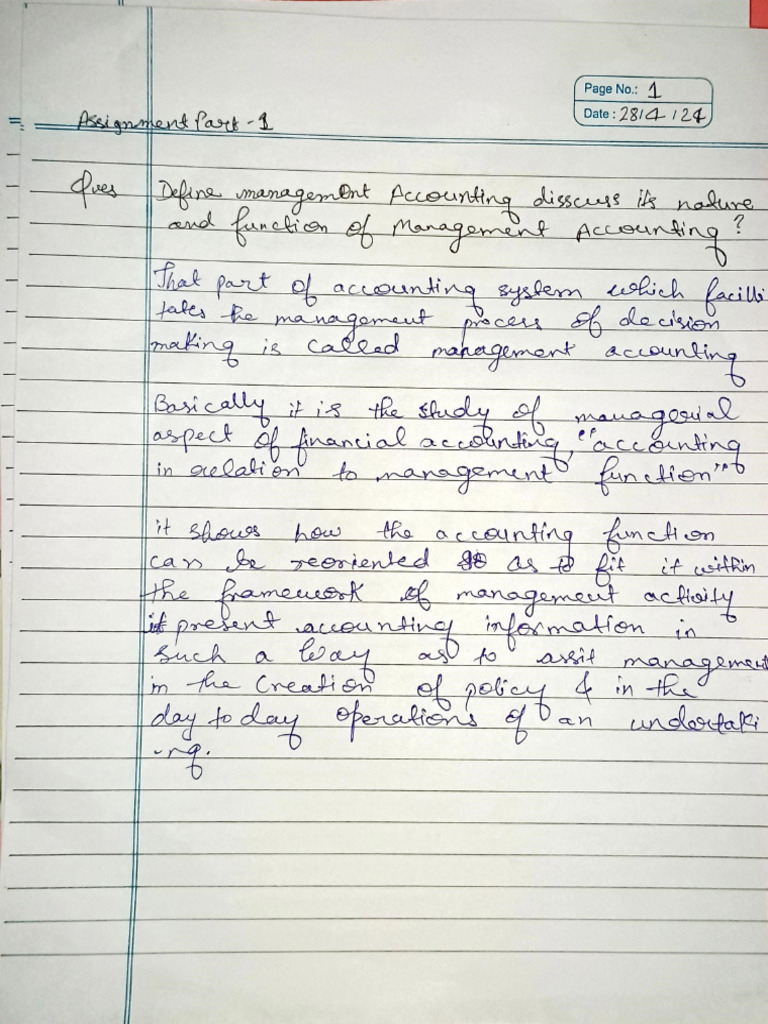 Page No.: 1
Date: 28/4/24
Assignment Part - 1
Ques Define management Accounting disscuss its nature
and function of Management Accounting?
That part of accounting system which facili
tates the management process of decision
making is called management accounting
Basically it is the study of managerial
aspect of financial accounting, "accounting
in relation to management function"
it shows how the accounting function
can be reoriented so as to fit it within
the framework of management activity
it present accounting information in
such a way as to assit management
in the creation of policy & in the
day to day operations of an undertaki
-ng.